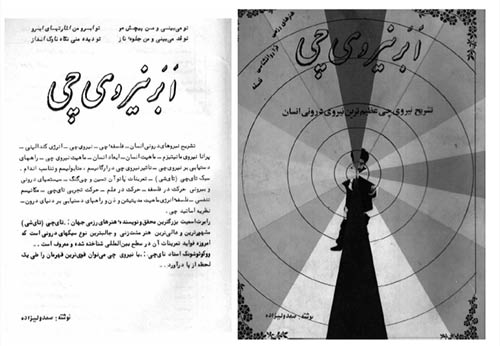 تو می‌بینی و من پیچش مو
تو ابرو من اشارتهای ابرو
تو قد می‌بینی و من جلوه ناز
تو دیده منی نگاه ناوک انداز
اَبَر نیروی چی
تشریح نیروهای درونی انسان ــ فلسفه چی ــ نیروی چی ــ انرژی کندالینی ــ
پرانا نیروی مانیتیزم ــ ماهیت انسان ــ ابعاد انسان ــ ماهیت نیروی چی ــ راههای
دستیابی به نیروی چی ــ تاثیر نیروی چی در ارگانیسم ــ متابولیسم و تناسب اندام ــ
سبک تای‌چی (تای‌شی) ــ تمرینات پاتوآن‌جین و چی‌گنگ ــ سیستمهای درونی
و بیرونی حرکت در فلسفه ــ حرکت در علم ــ حرکت تجربی تای‌چی ــ مکانیسم
تنفسی ــ فلسفه و ماهیت مدیتیشن و ذن و راههای دستیابی به دنیای درون ــ
نظریه اساتید چی.
رابرت اسمیت بزرگترین محقق و نویسنده هنرهای رزمی جهان: . تای‌چی (تای‌شی)
مشهورترین و عالی‌ترین هنر مشت‌زنی و جالبترین نوع سبکهای درونی است که
امروزه فواید تمرینات آن در سطح بین‌المللی شناخته شده و معروف است ..
استاد تای‌چی: . با نیروی چی می‌توان قوی‌ترین قهرمان را طی یک
لحظه از پا درآورد ..
نوشته: صمد ولیزاده
هنرهای رزمی
فرا روانشناسی
فلسفه
اَبَر نیروی چی
تشریح نیروی چی عظیم‌ترین نیروی درونی انسان
نوشته: صمد ولیزاده